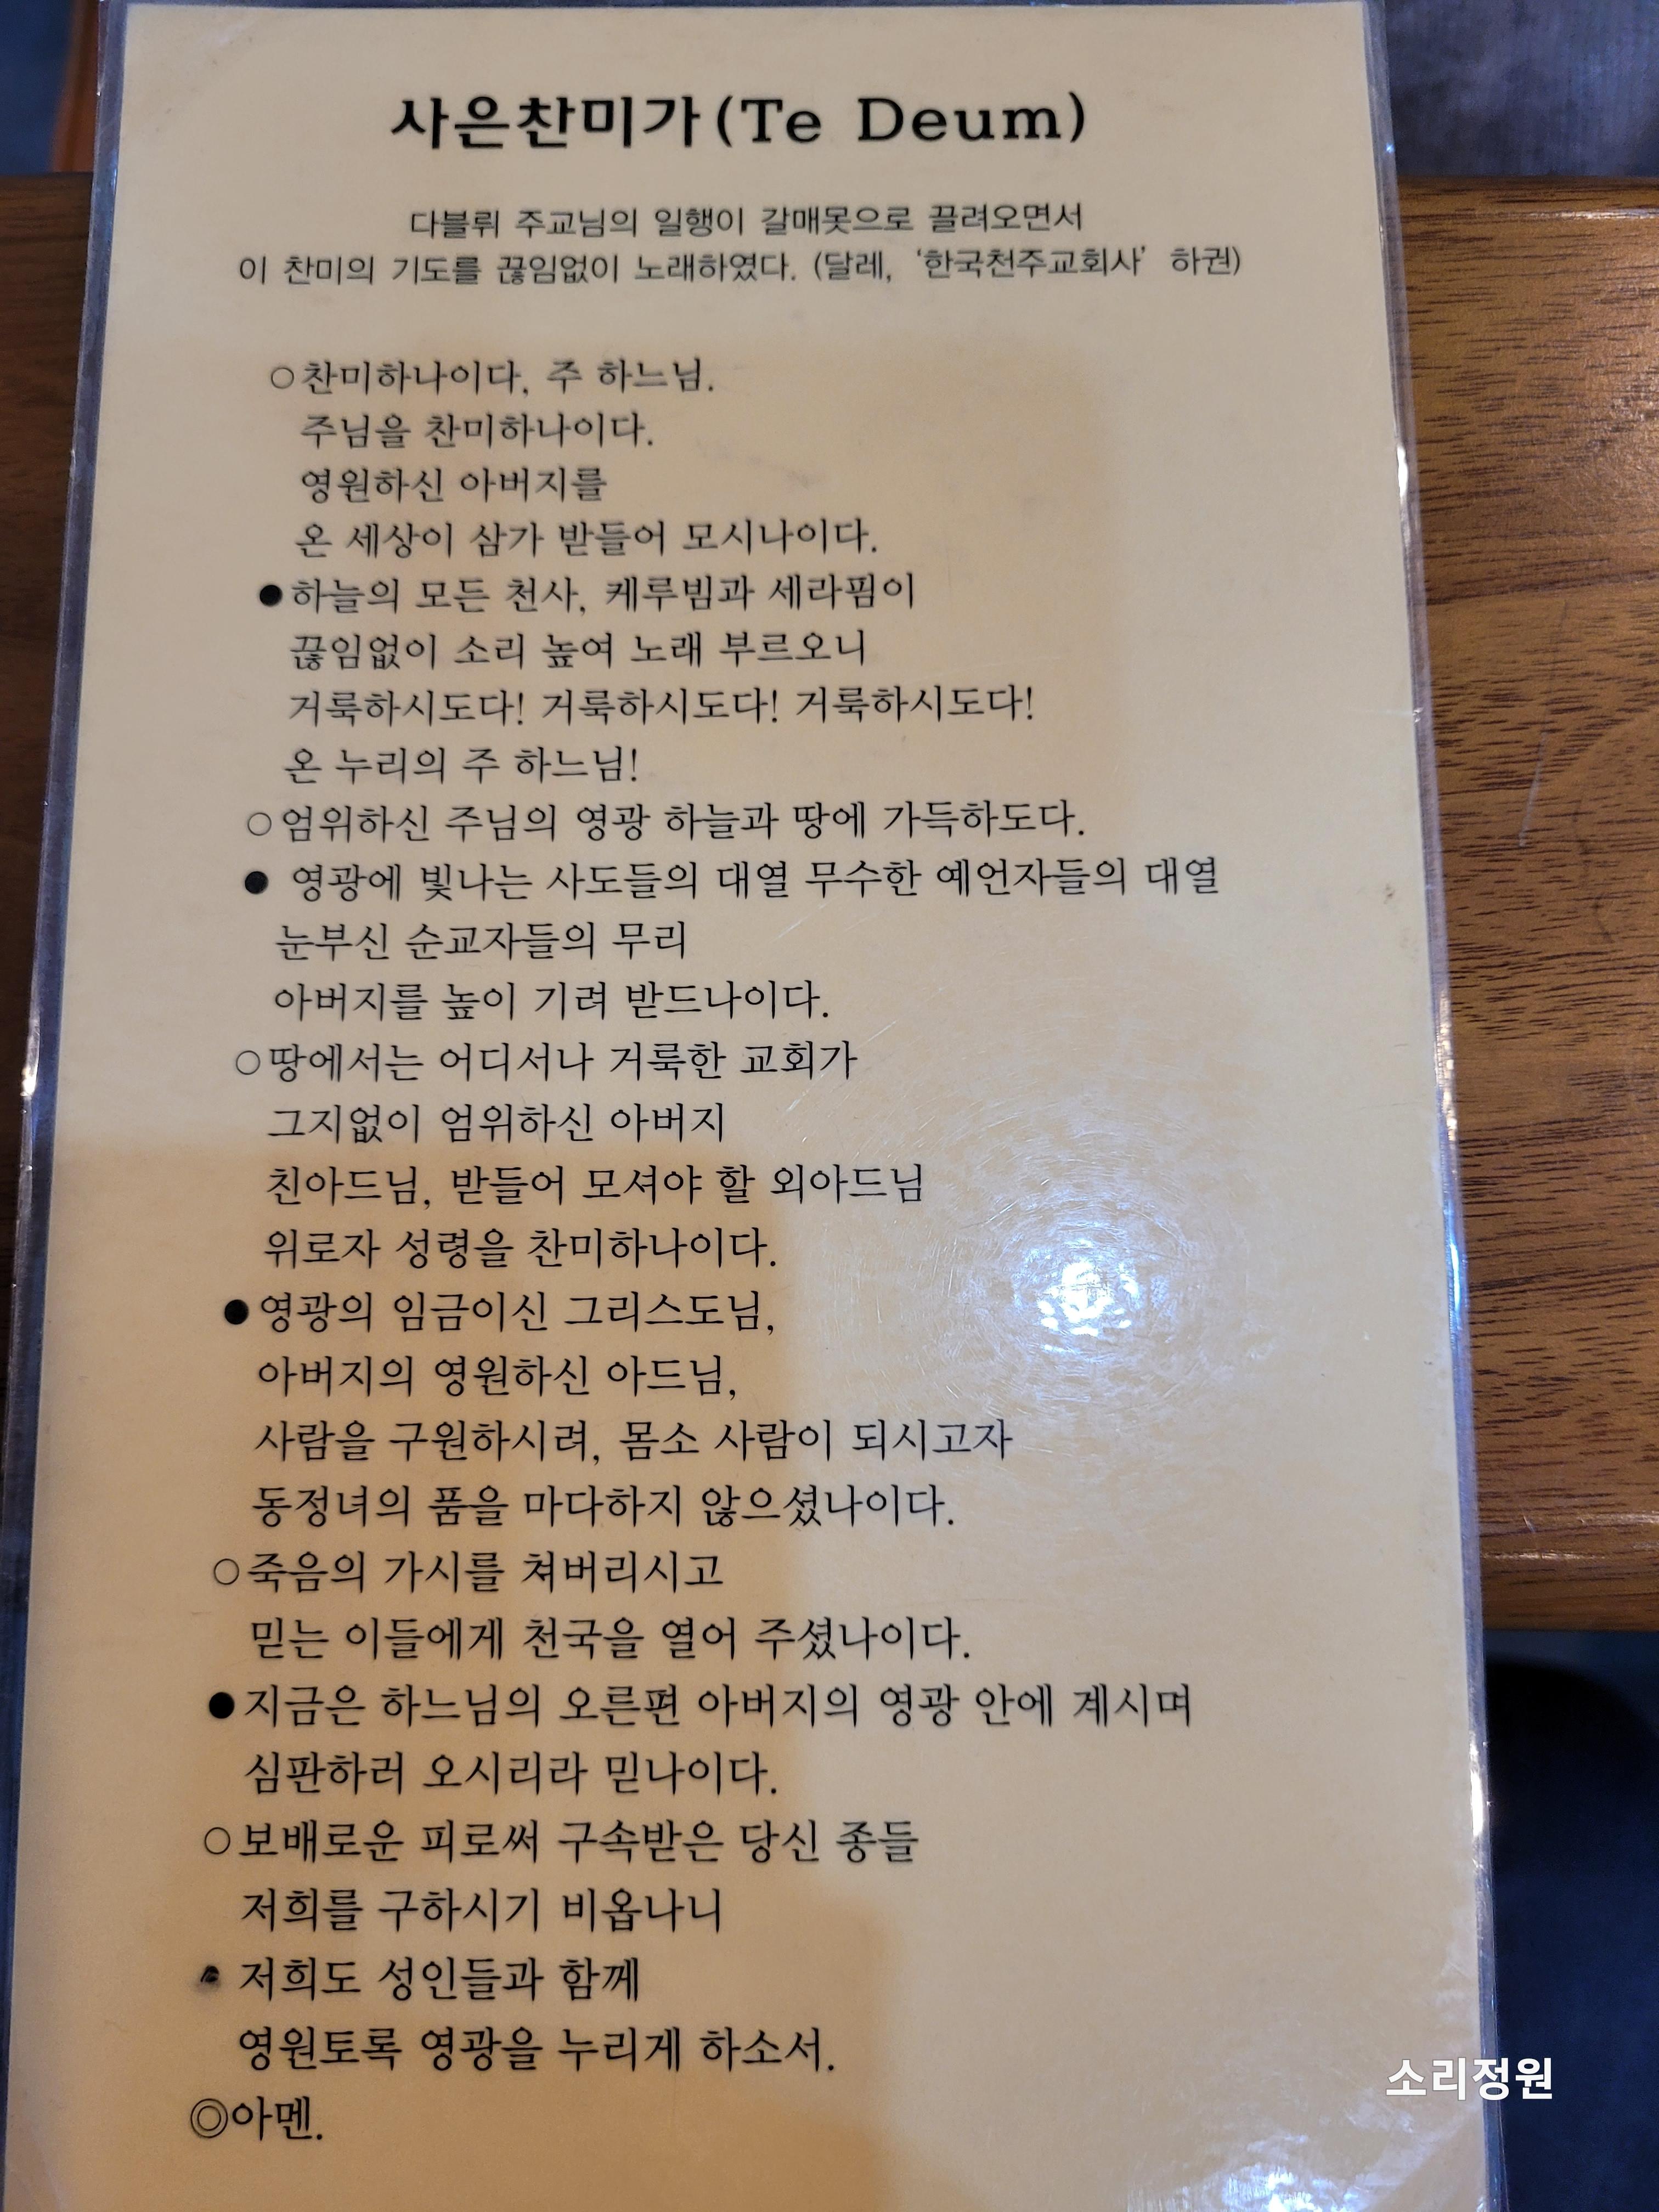 사은찬미가(Te Deum)
다블뤼 주교님의 일행이 갈매못으로 끌려오면서
이 찬미의 기도를 끊임없이 노래하였다. (달레, ‘한국천주교회사’ 하권)
○찬미하나이다, 주 하느님.
주님을 찬미하나이다.
영원하신 아버지를
온 세상이 삼가 받들어 모시나이다.
●하늘의 모든 천사, 케루빔과 세라핌이
끊임없이 소리 높여 노래 부르오니
거룩하시도다! 거룩하시도다! 거룩하시도다!
온 누리의 주 하느님!
○엄위하신 주님의 영광 하늘과 땅에 가득하도다.
● 영광에 빛나는 사도들의 대열 무수한 예언자들의 대열
눈부신 순교자들의 무리
아버지를 높이 기려 받드나이다.
○땅에서는 어디서나 거룩한 교회가
그지없이 엄위하신 아버지
친아드님, 받들어 모셔야 할 외아드님
위로자 성령을 찬미하나이다.
●영광의 임금이신 그리스도님,
아버지의 영원하신 아드님,
사람을 구원하시려, 몸소 사람이 되시고자
동정녀의 품을 마다하지 않으셨나이다.
○죽음의 가시를 쳐버리시고
믿는 이들에게 천국을 열어 주셨나이다.
●지금은 하느님의 오른편 아버지의 영광 안에 계시며
심판하러 오시리라 믿나이다.
○보배로운 피로써 구속받은 당신 종들
저희를 구하시기 비옵나니
● 저희도 성인들과 함께
영원토록 영광을 누리게 하소서.
◎아멘.
소리정원